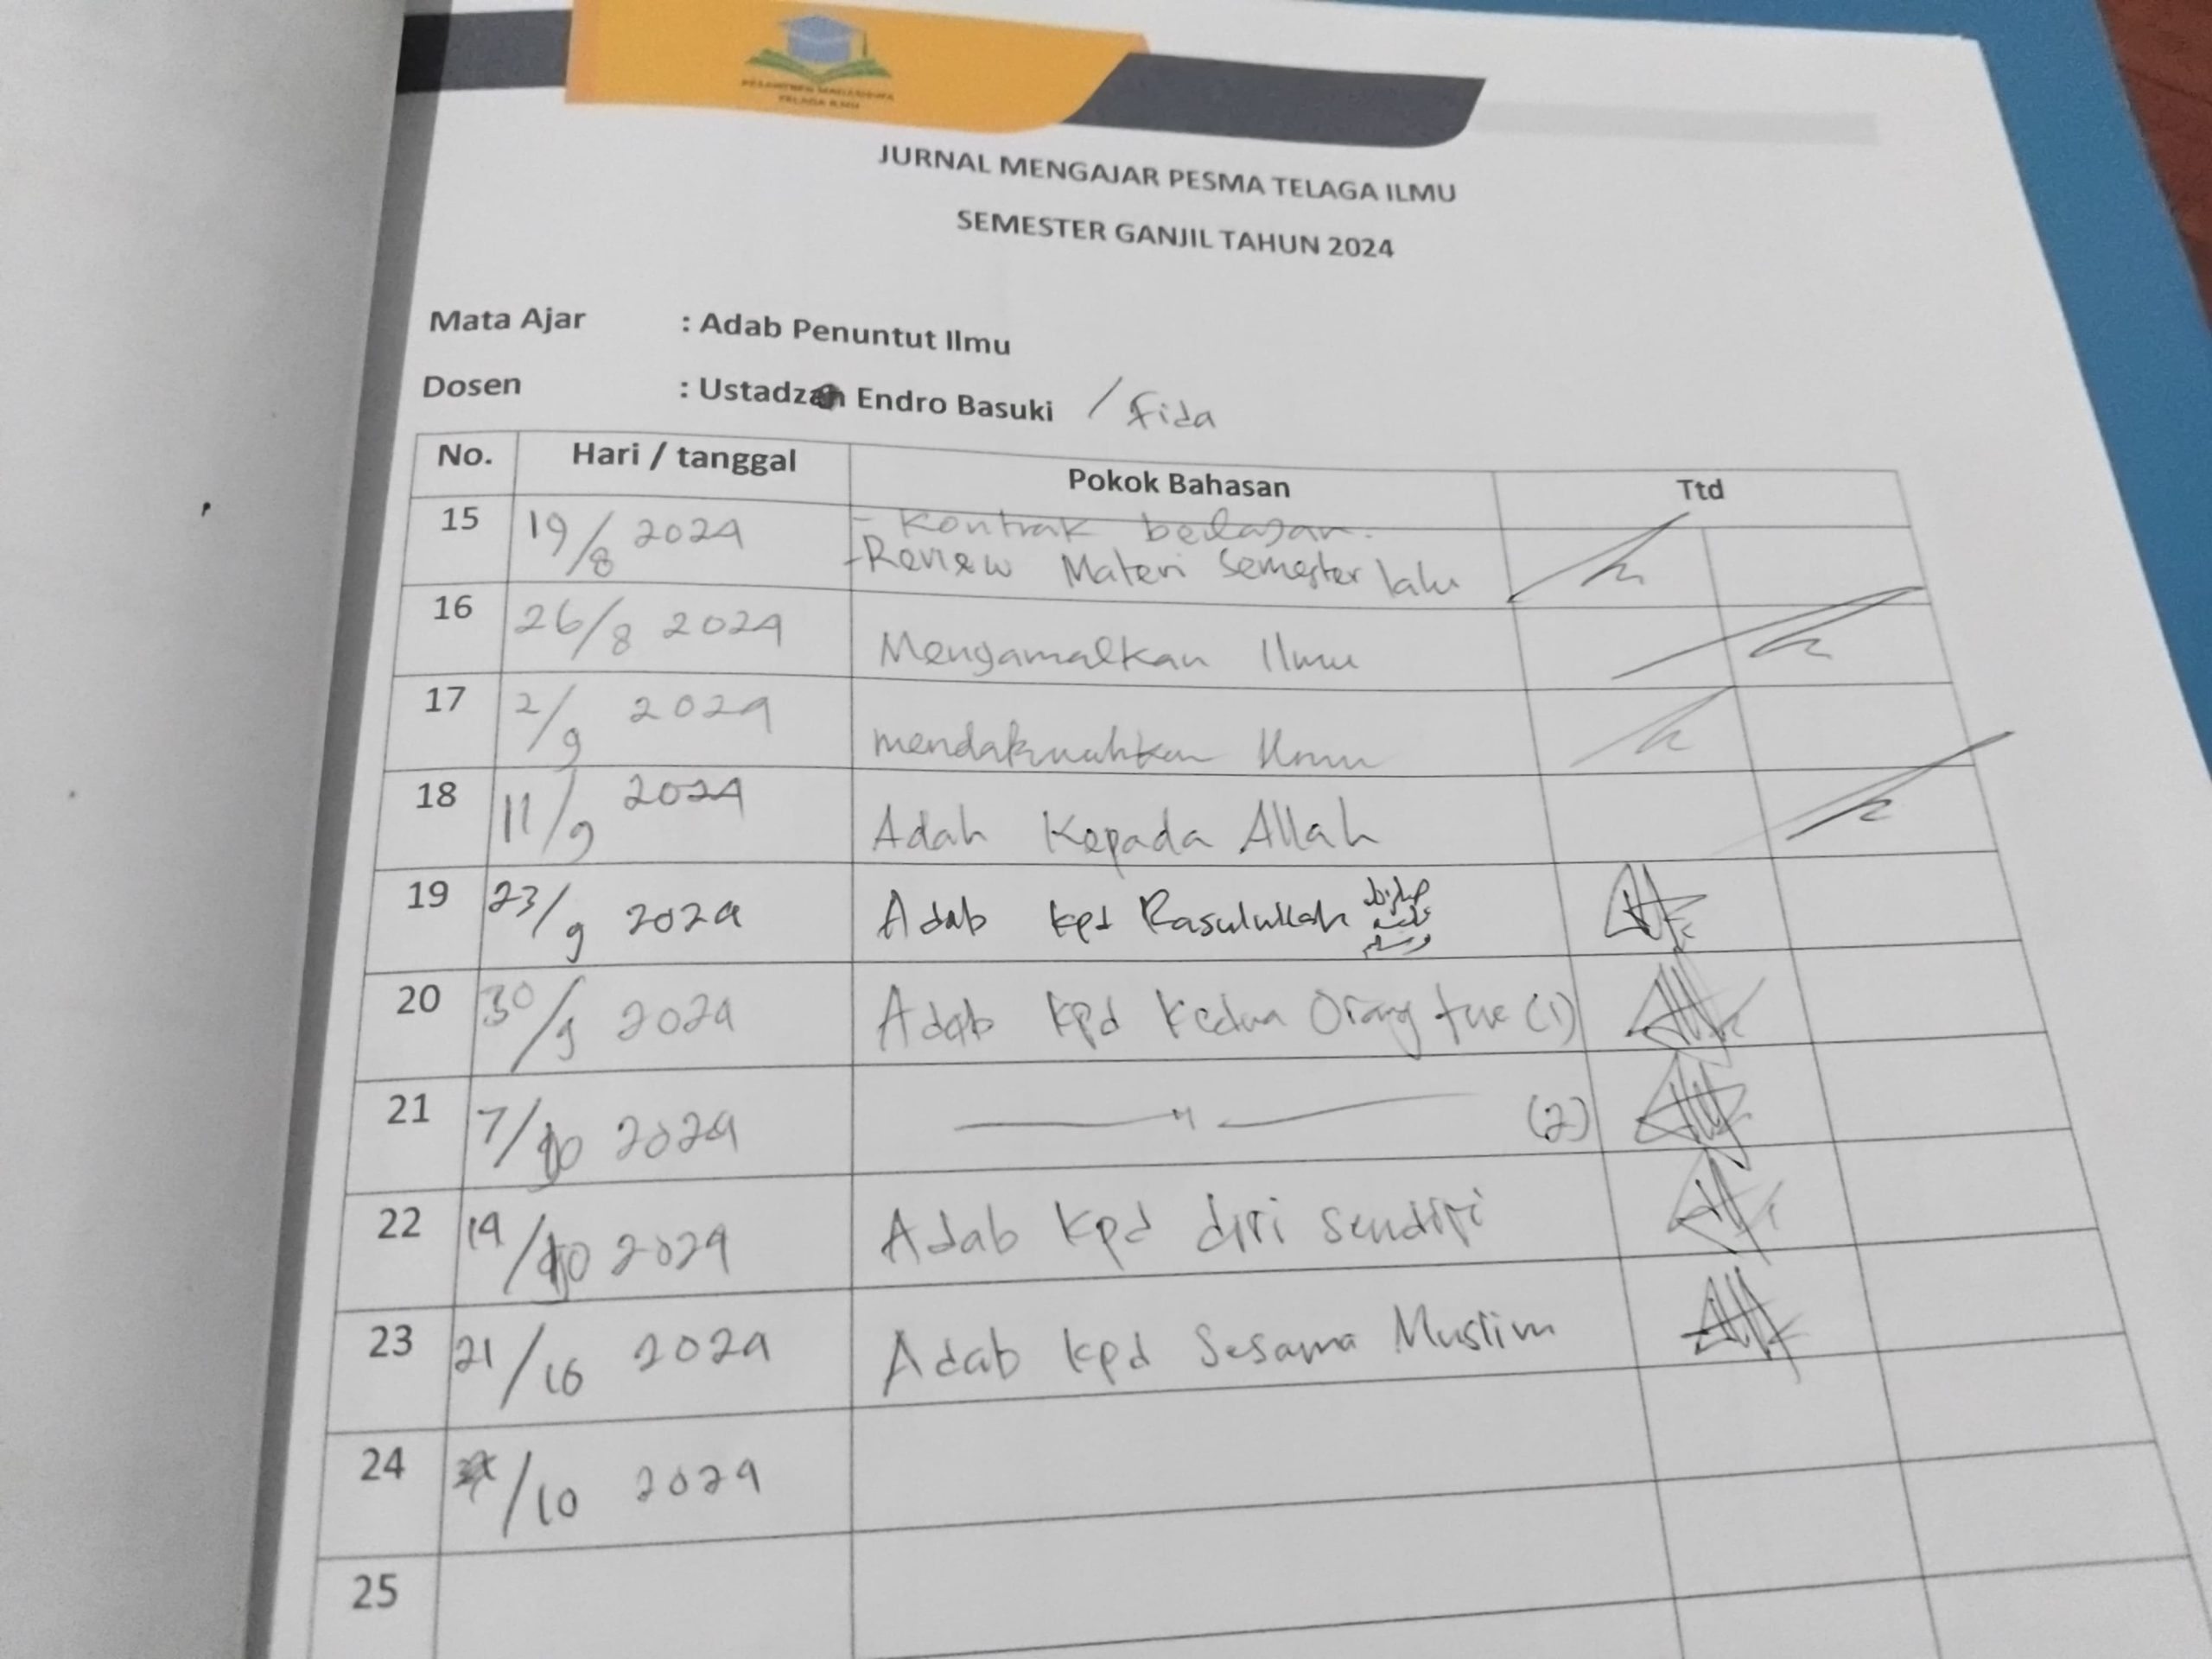 PESANTREN MAHASISWA
TELAGA ILMU
JURNAL MENGAJAR PESMA TELAGA ILMU
SEMESTER GANJIL TAHUN 2024
Mata Ajar : Adab Penuntut Ilmu
Dosen : Ustadzah Endro Basuki / Fida
No. Hari / tanggal Pokok Bahasan Ttd
15 19/8 2024 - Kontrak belajar.
- Review Materi Semester lalu
16 26/8 2024 Mengamalkan Ilmu
17 2/9 2024 mendakwahkan Ilmu
18 11/9 2024 Adab Kepada Allah
19 23/9 2024 Adab kpd Rasulullah صلى الله
عليه
وسلم
20 30/9 2024 Adab kpd Kedua Orang tua (1)
21 7/10 2024 —— " —— (2)
22 14/10 2024 Adab kpd diri sendiri
23 21/10 2024 Adab kpd Sesama Muslim
24 /10 2024
25